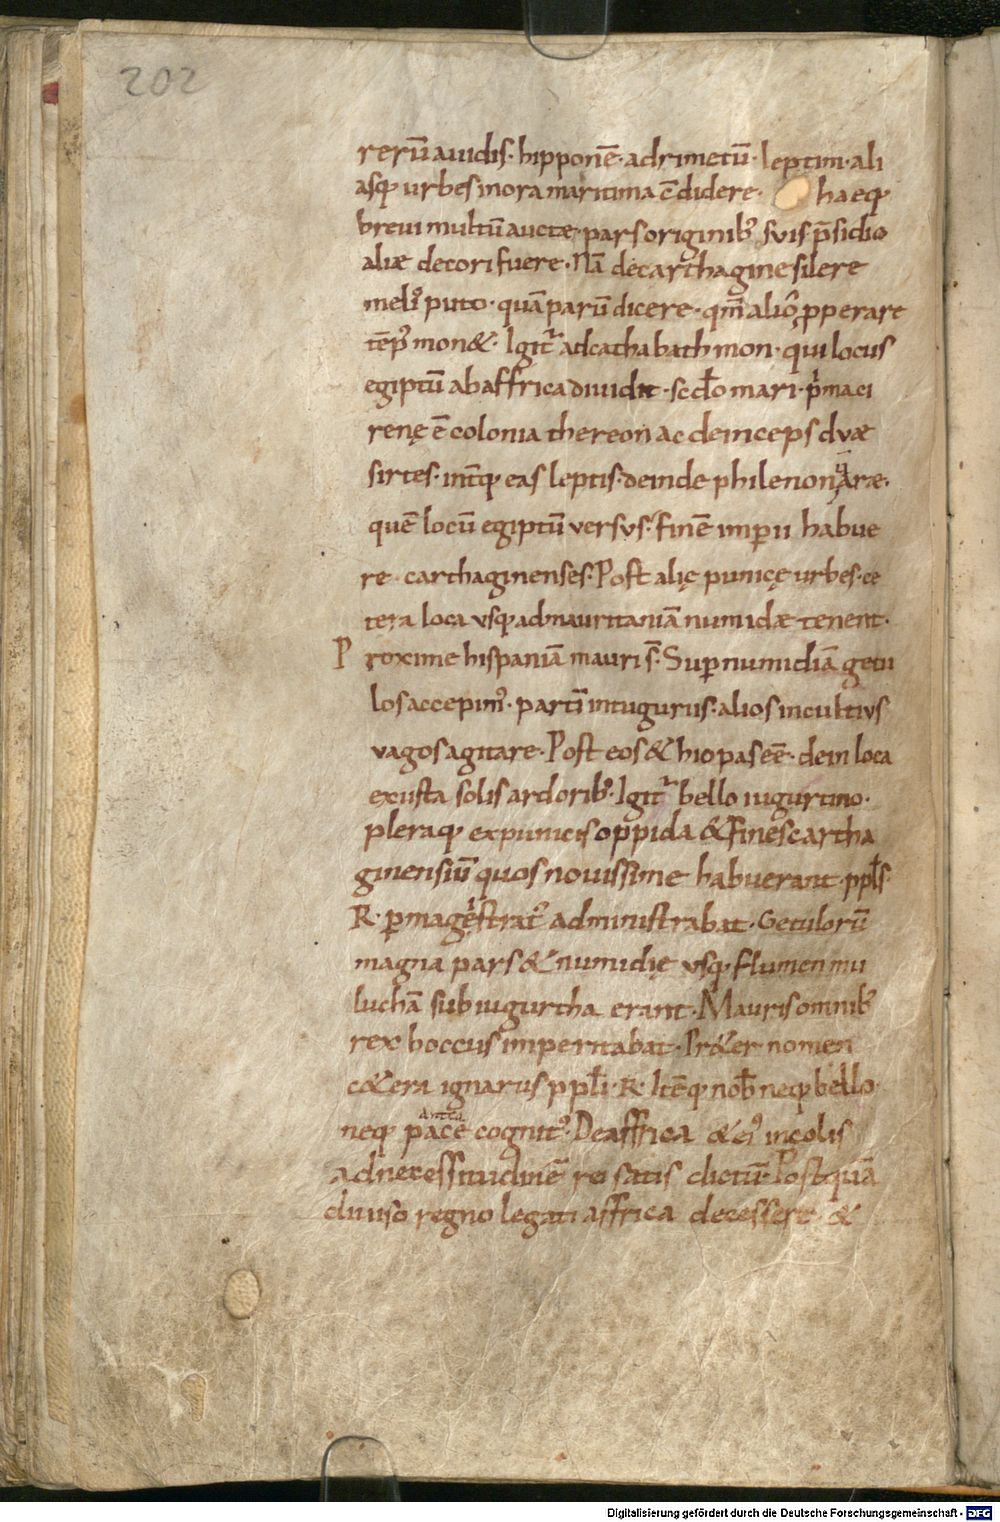 202
rerū auidis· hipponē· adrimetū· leptim· ali
asq; urbes inora maritima c̄didere· haeq;
breui multū auctæ· pars originib; suis p̄sidio
aliæ decori fuere· Nā decarthagine silere
meli' puto· quā parū dicere· qm̄ alio pperare
tēp' mon&· Igit̄ adcathabathmon· qui locus
egiptū abaffrica diuidit· scd̄o mari· p̄ma ci
renę ē colonia thereon ac deinceps duæ
sirtes· int̄q; eas leptis· deinde philenon aræ·
quē locū egiptū versus· finē imperii habue
re· carthaginenses· Post alię punicę urbes· ce
tera loca usq; admauritaniā numidæ tenent·
P roxime hispaniā mauri s̄· Sup numidiā getu
los accepim'· partī intuguriis· alios incultius
uagos agitare· Post eos & hiopas eē· dein loca
exusta solis ardorib;· Igit̄ bello iugurtino·
pleraq; expunicis oppida & fines cartha
ginensiū quos nouissime habuerant· ppls
R· pmagestrat' administrabat· Getulorū
magna pars & numidię usq; flumen mu
luchā sub iugurtha erant· Mauris omnib;
rex boccus imperitabat· Pr&er nomen
c&era ignarus ppli· R· Itēq; nob̄ neq; bello
antea
neq; pace cognit'· De affrica & ei' incolis
ad necessitudinē rei satis dictū· Postquā
diuiso regno legati affrica decessere &
Digitalisierung gefördert durch die Deutsche Forschungsgemeinschaft - DFG